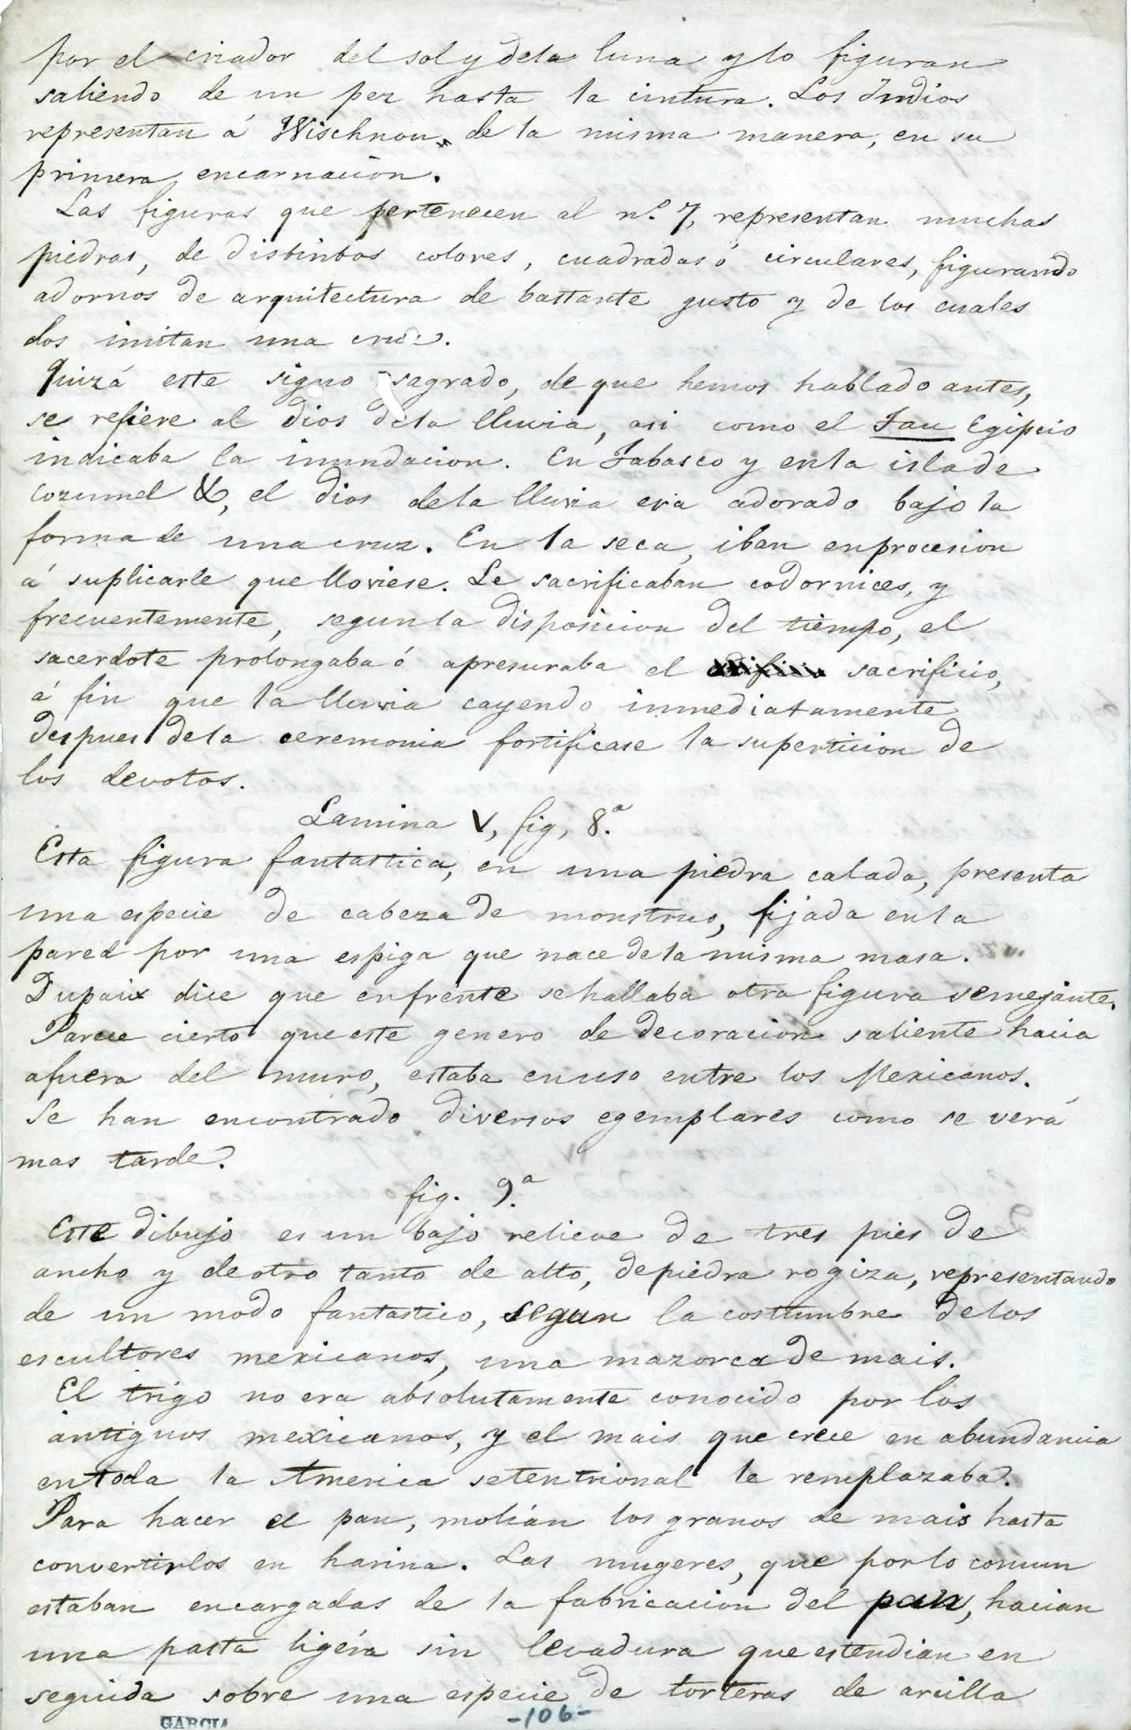 por el criador del sol y dela luna y lo figuran
saliendo de un pez hasta la cintura. Los Indios
representan á Wischnou, de la misma manera, en su
primera encarnacion.
Las figuras que pertenecen al nº 7, representan muchas
piedras, de distintos colores, cuadradas ó circulares, figurando
adornos de arquitectura de bastante gusto y de los cuales
dos imitan una cruz.
Quizá este signo sagrado, de que hemos hablado antes,
se refiere al dios dela lluvia, asi como el Tau Egipcio
indicaba la inundacion. En Tabasco y enla isla de
Cozumel &, el dios dela lluvia era adorado bajo la
forma de una cruz. En la seca, iban enprocesion
á suplicarle que lloviese. Le sacrificaban codornices, y
frecuentemente, segun la disposicion del tiempo, el
sacerdote prolongaba ó apresuraba el edificio sacrificio,
á fin que la lluvia cayendo inmediatamente
despues dela ceremonia fortificase la supersticion de
los devotos.
Lamina V, fig, 8.ª
Esta figura fantastica, en una piedra calada, presenta
una especie de cabeza de monstruo, fijada enla
pared por una espiga que nace dela misma masa.
Dupaix dice que enfrente se hallaba otra figura semejante.
Parece cierto que este genero de decoracion saliente hacia
afuera del muro, estaba en uso entre los Mexicanos.
Se han encontrado diversos egemplares como se verá
mas tarde.
fig. 9.ª
Este dibujo es un bajo relieve de tres pies de
ancho y de otro tanto de alto, de piedra rogiza, representando
de un modo fantastico, segun la costumbre de los
escultores mexicanos, una mazorca de mais.
El trigo no era absolutamente conocido por los
antiguos mexicanos, y el mais que crece en abundancia
en toda la America setentrional le remplazaba.
Para hacer el pan, molián los granos de mais hasta
convertirlos en harina. Las mugeres, que por lo comun
estaban encargadas de la fabricacion del pan, hacian
una pasta ligéra sin levadura que estendian en
seguida sobre una especie de torteras de arcilla
-106-
GARCIA